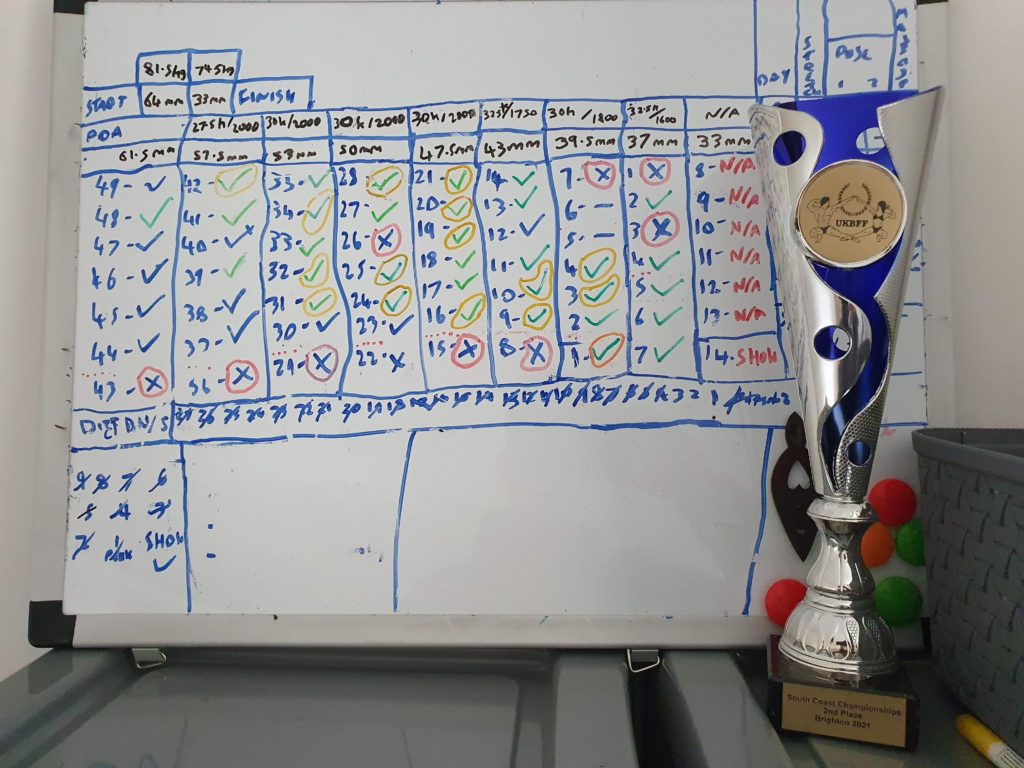 81.5kg 74.5kg
START 64mm 33mm FINISH
POA 27.5h/2000 30h/2000 30h/2000 30h/2000 /1750 30h/1800 32.5h/1600 N/A
61.5mm 57.5mm 53mm 50mm 47.5mm 43mm 39.5mm 37mm 33mm
49- ✓ 42- ✓ 35- ✓ 28- ✓ 21- ✓ 14- ✓ 7- X 1 X 8- N/A
48- ✓ 41- ✓ 34- ✓ 27- ✓ 20- ✓ 13- ✓ 6- — 2 ✓ 9- N/A
47- ✓ 40- ✓ 33- ✓ 26- X 19- ✓ 12- ✓ 5- — 3 X 10- N/A
46- ✓ 39- ✓ 32- ✓ 25- ✓ 18- ✓ 11- ✓ 4- ✓ 4 ✓ 11- N/A
45- ✓ 38- ✓ 31- ✓ 24- ✓ 17- ✓ 10- ✓ 3- ✓ 5 ✓ 12- N/A
44- ✓ 37- ✓ 30- ✓ 23- ✓ 16- ✓ 9- ✓ 2- ✓ 6 ✓ 13- N/A
43- X 36- X 29- X 22- X 15- X 8- X 1- ✓ 7 ✓ 14- SHOW
DIET D N/S
9 8 7 6
5 4 7
SHOW
✓
DAY
UKBFF
South Coast Championships
2nd Place
Brighton 2021